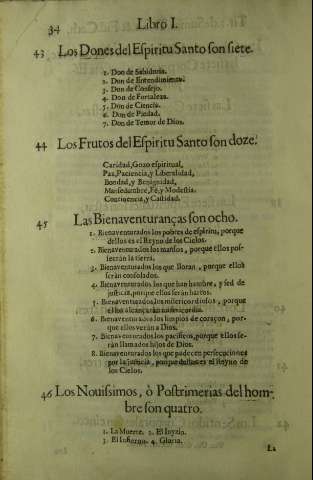 34 Libro I.
43 Los Dones del Eſpiritu Santo ſon ſiete.
1. Don de Sabiduria.
2. Don de Entendimiento.
3. Don de Conſejo.
4. Don de Fortaleza.
5. Don de Ciencia.
6. Don de Piedad.
7. Don de Temor de Dios.
44 Los Frutos del Eſpiritu Santo ſon doze.
Caridad, Gozo eſpiritual,
Paz, Paciencia, y Liberalidad,
Bondad, y Benignidad,
Manſedumbre, Fè, y Modeſtia.
Continencia, y Caſtidad.
45 Las Bienaventuranças ſon ocho.
1. Bienaventurados los pobres de eſpiritu, porque
dellos es el Reyno de los Cielos.
2. Bienaventurados los manſos, porque ellos poſ-
ſeeràn la tierra.
3. Bienaventurados los que lloran, porque ellos
ſeràn conſolados.
4. Bienaventurados los que han hambre, y ſed de
juſticia, porque ellos ſeràn hartos.
5. Bienaventurados los miſericordioſos, porque
ellos alcançaràn miſericordia.
6. Bienaventurados los limpios de coraçon, por-
que ellos veràn a Dios.
7. Bienaventurados los pacificos, porque ellos ſe-
ràn llamados hijos de Dios.
8. Bienaventurados los que padecen perſecuciones
por la juſticia, porque dellos es el Reyno de
los Cielos.
46 Los Nouiſsimos, ò Poſtrimerias del hom-
bre ſon quatro.
1. La Muerte. 2. El Iuyzio.
3. El Infierno. 4. Gloria.
La